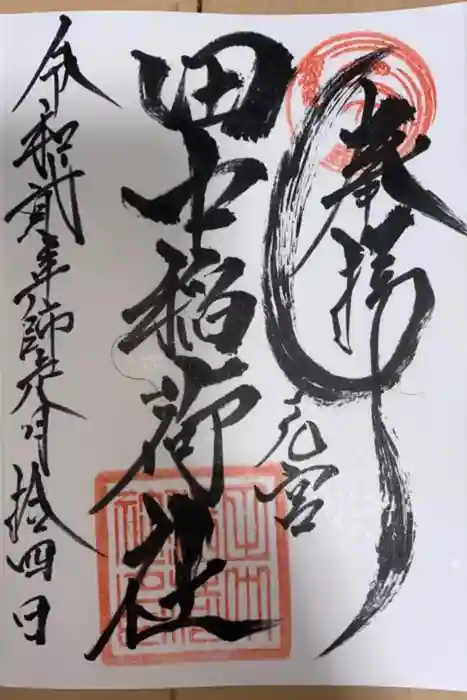 奉拝
元宮
田中稲荷社
令和貳年師走月拾四日